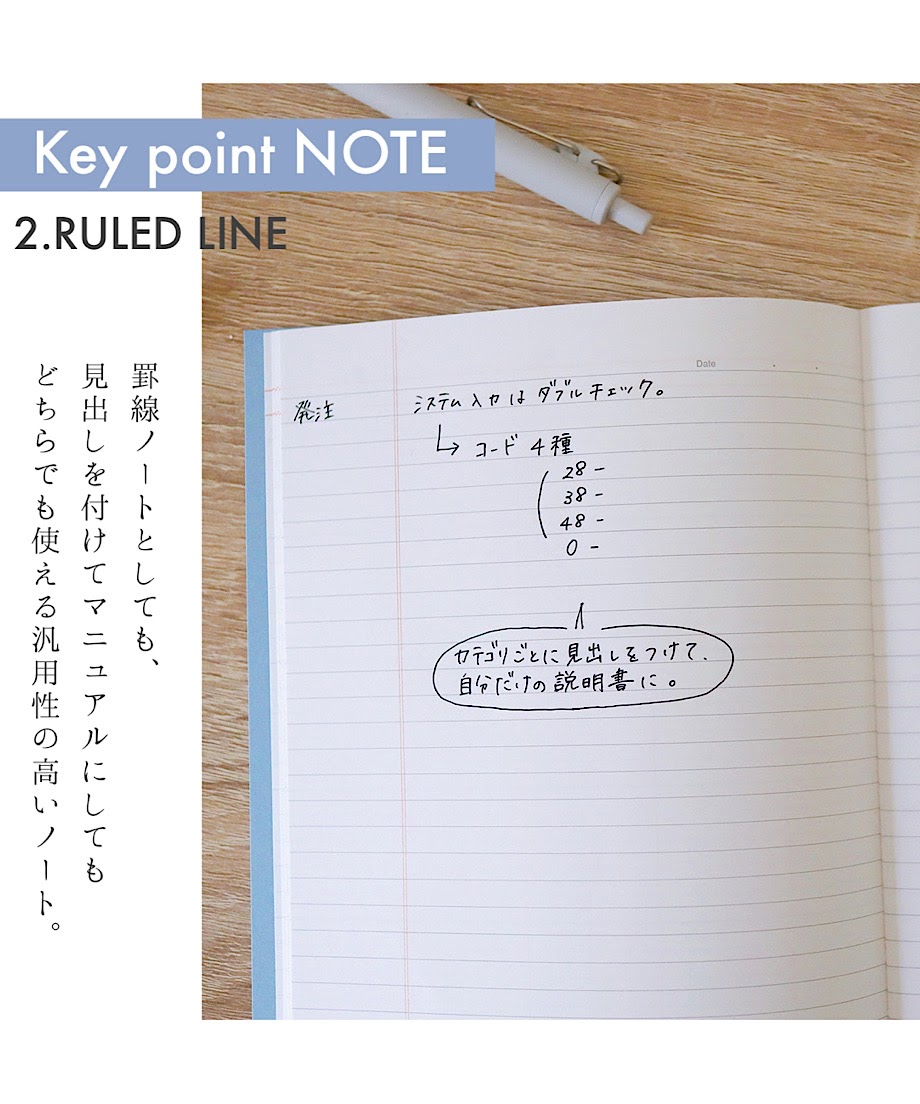 Key point NOTE
2.RULED LINE
罫線ノートとしても、
見出しを付けてマニュアルにしても
どちらでも使える汎用性の高いノート。
Date
発注
システム入力はダブルチェック。
↳コード 4種
28 -
38 -
48 -
0 -
カテゴリごとに見出しをつけて、
自分だけの説明書に。